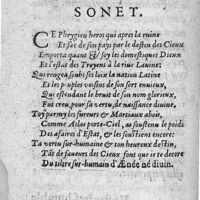 SONET.
CE Phrygien heros qui apres la ruine
Et sac de son pays par le destin des Cieux
Emporta quant & soy les domestiques Dieux
Et l'estat des Troyens à la rive Latine:
Qui rengea soubs ses loix la nation Latine
Et les peuples voisins de son fort ennieux,
Qui estendant le bruit de son nom glorieux,
Fut creu, pour sa vertu, de naissance diuine,
Toy parmy les fureurs & Martiaux abois,
Comme Atlas porte-Ciel, as soustenu le poids
Des afaires d'Estat, & les soustiens encore:
Ta vertu sur-humaine & ton heureux destin,
Tāt de faueurs des Cieux font que ie te decore
Du tiltre sur-humain d'Ænée né diuin.